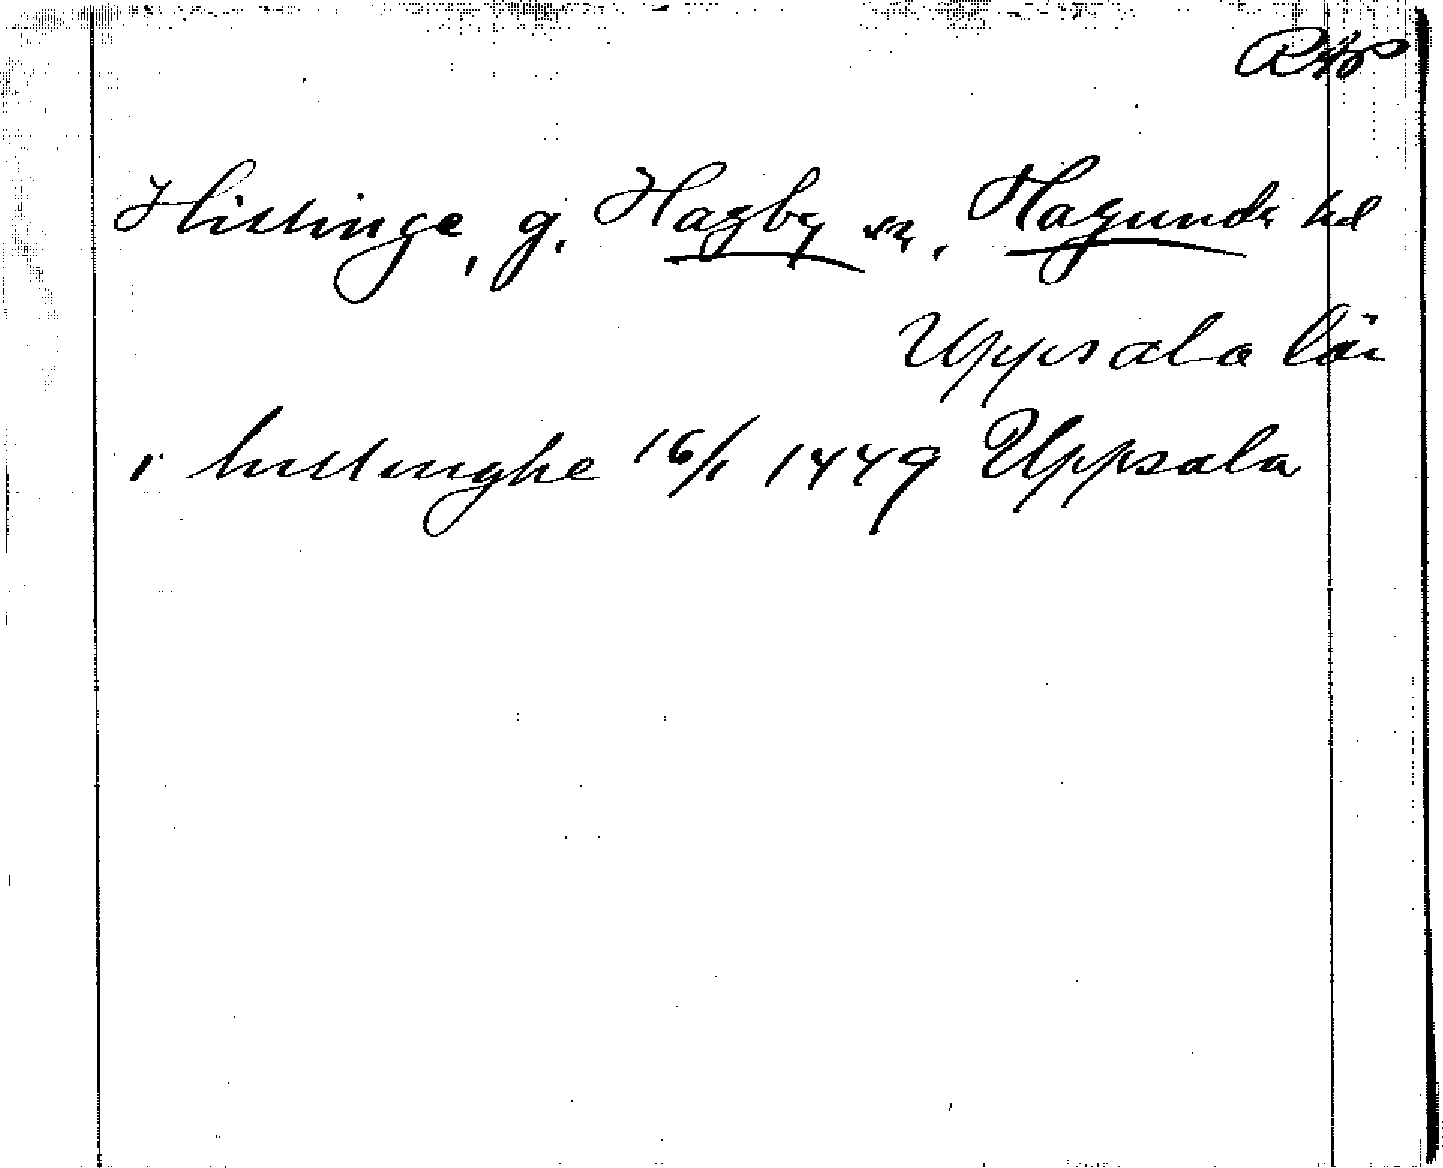 Hittinge, g. Hagby sn, Hagunda hd
Uppsala län
i hittinghe 16/1 1449 Uppsala